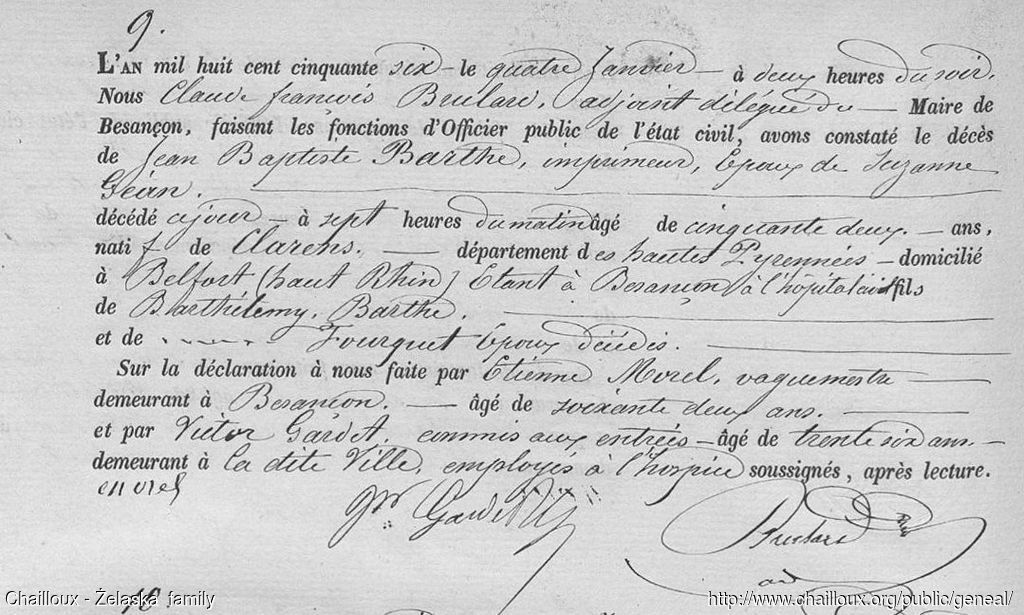 9.
L'AN mil huit cent cinquante six - le quatre Janvier - à deux heures du soir.
Nous Claude françois Brulard, adjoint délégué du — Maire de
Besançon, faisant les fonctions d'Officier public de l'état civil, avons constaté le décès
de Jean Baptiste Barthe, imprimeur, Epoux de Suzanne
Géan.
décédé ce jour - à sept heures du matin âgé de cinquante deux. - ans,
natif de Clarens. — département des hautes Pyrennées - domicilié
à Belfort, (haut Rhin) Etant à Besançon à l'hôpital fils
de Barthélemy, Barthe.
et de ..... Fourquet Epoux décédés.
Sur la déclaration à nous faite par Etienne Morel, vaguemestre —
demeurant à Besançon. — âgé de soixante deux ans.
et par Victor Gardet, commis aux entrées - âgé de trente six ans. -
demeurant à la dite Ville, employés à l'hospice soussignés, après lecture.
morel
Gardet
Brulard
adj
10.
Chailloux - Żelaska family
http://www.chailloux.org/public/geneal/